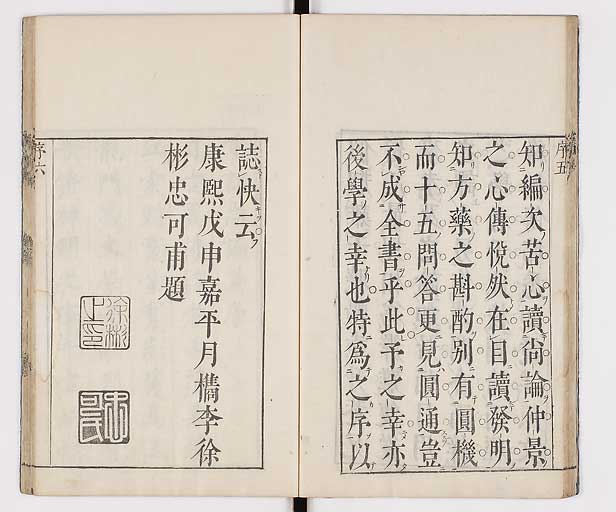 序五
知編次苦心讀尚論仲景
之心傳悅然在目讀發明
知方藥之斟酌別有圓機
而十五問答更見圓通豈
不成全書乎此予之幸亦
後學之幸也特為之序以
誌快云
康熙戊申嘉平月檇李徐
彬忠可甫題
徐彬之印
序六